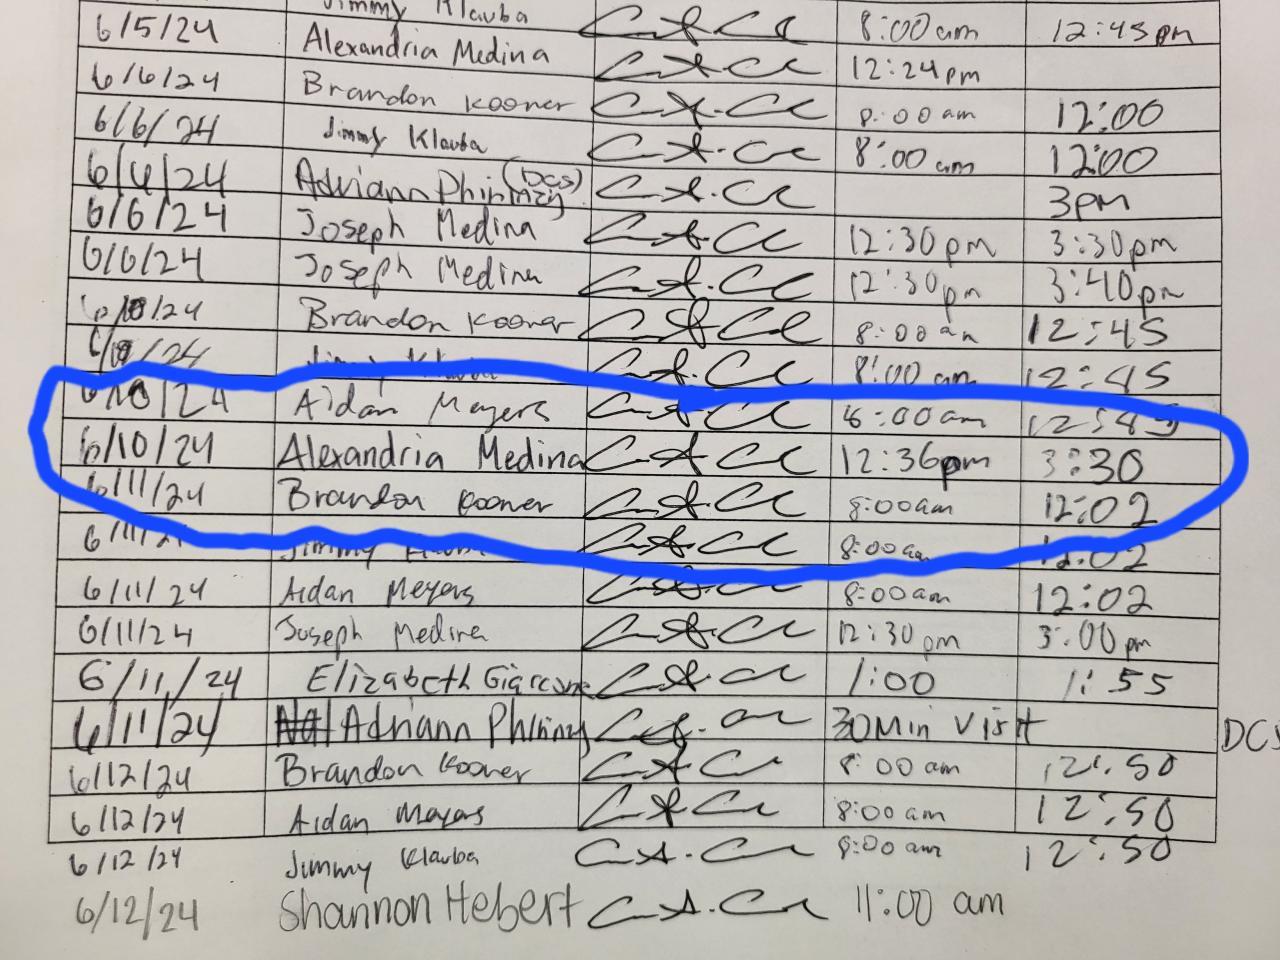 Jimmy Klauba
6/5/24 Alexandria Medina 8:00am 12:45pm
6/6/24 Brandon Kooner 12:24pm
6/6/24 Jimmy Klauba 8:00am 12:00
6/6/24 Adriann Phinnizy (DCS) 8:00am 12:00
6/6/24 Joseph Medina 3pm
6/6/24 Joseph Medina 12:30pm 3:30pm
6/10/24 Brandon Kooner 12:30pm 3:40pm
6/10/24 Jimmy Klauba 8:00am 12:45
8:00am 12:45
6/10/24 Aidan Meyers 8:00am 12:45
6/10/24 Alexandria Medina 12:36pm 3:30
6/11/24 Brandon Kooner 8:00am 12:02
6/11/24 Jimmy Klauba 8:00am 12:02
6/11/24 Aidan Meyers 8:00am 12:02
6/11/24 Joseph Medina 12:30pm 3:00pm
6/11/24 Elizabeth 1:00 1:55
6/11/24 Adriann 30 Min Visit DCS
6/12/24 Brandon Kooner 8:00am 12:50
6/12/24 Aidan Meyers 8:00am 12:50
6/12/24 Jimmy Klauba 8:00am 12:50
6/12/24 Shannon Hebert 11:00 am